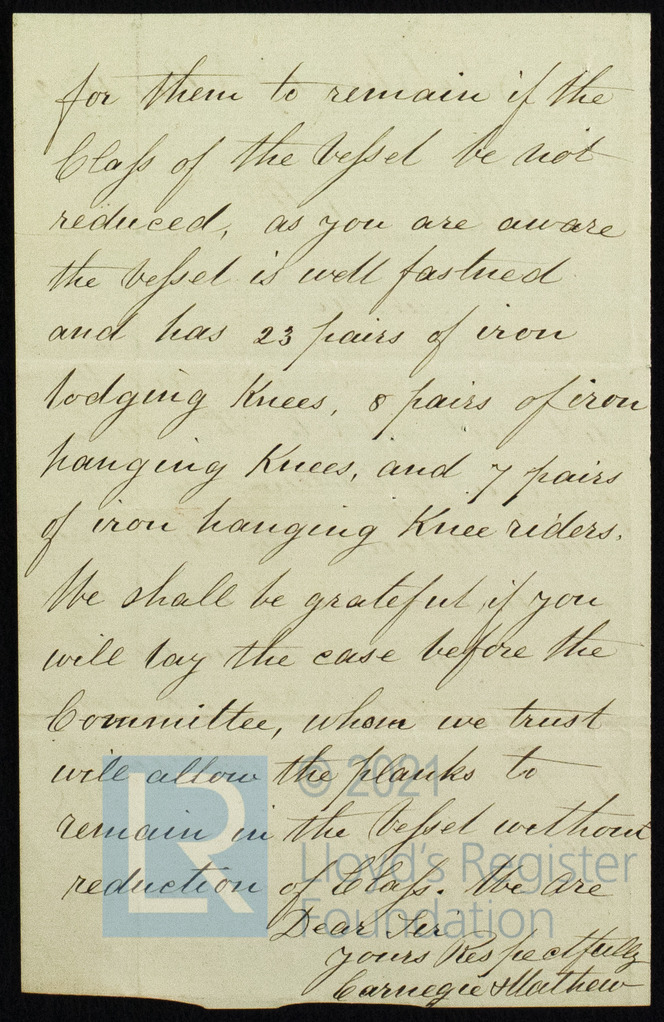 for them to remain if the
Class of the Vessel be not
reduced, as you are aware
the Vessel is well fastned
and has 23 pairs of iron
lodging Knees, 8 pairs of iron
hanging Knees, and 7 pairs
of iron hanging Knee riders.
We shall be grateful if you
will lay the case before the
Committee, whom we trust
will allow the planks to
remain in the Vessel without
reduction of Class. We are
Dear Sir
yours Respectfully
Carnegie & Mathew
LR
© 2021
Lloyd's Register
Foundation